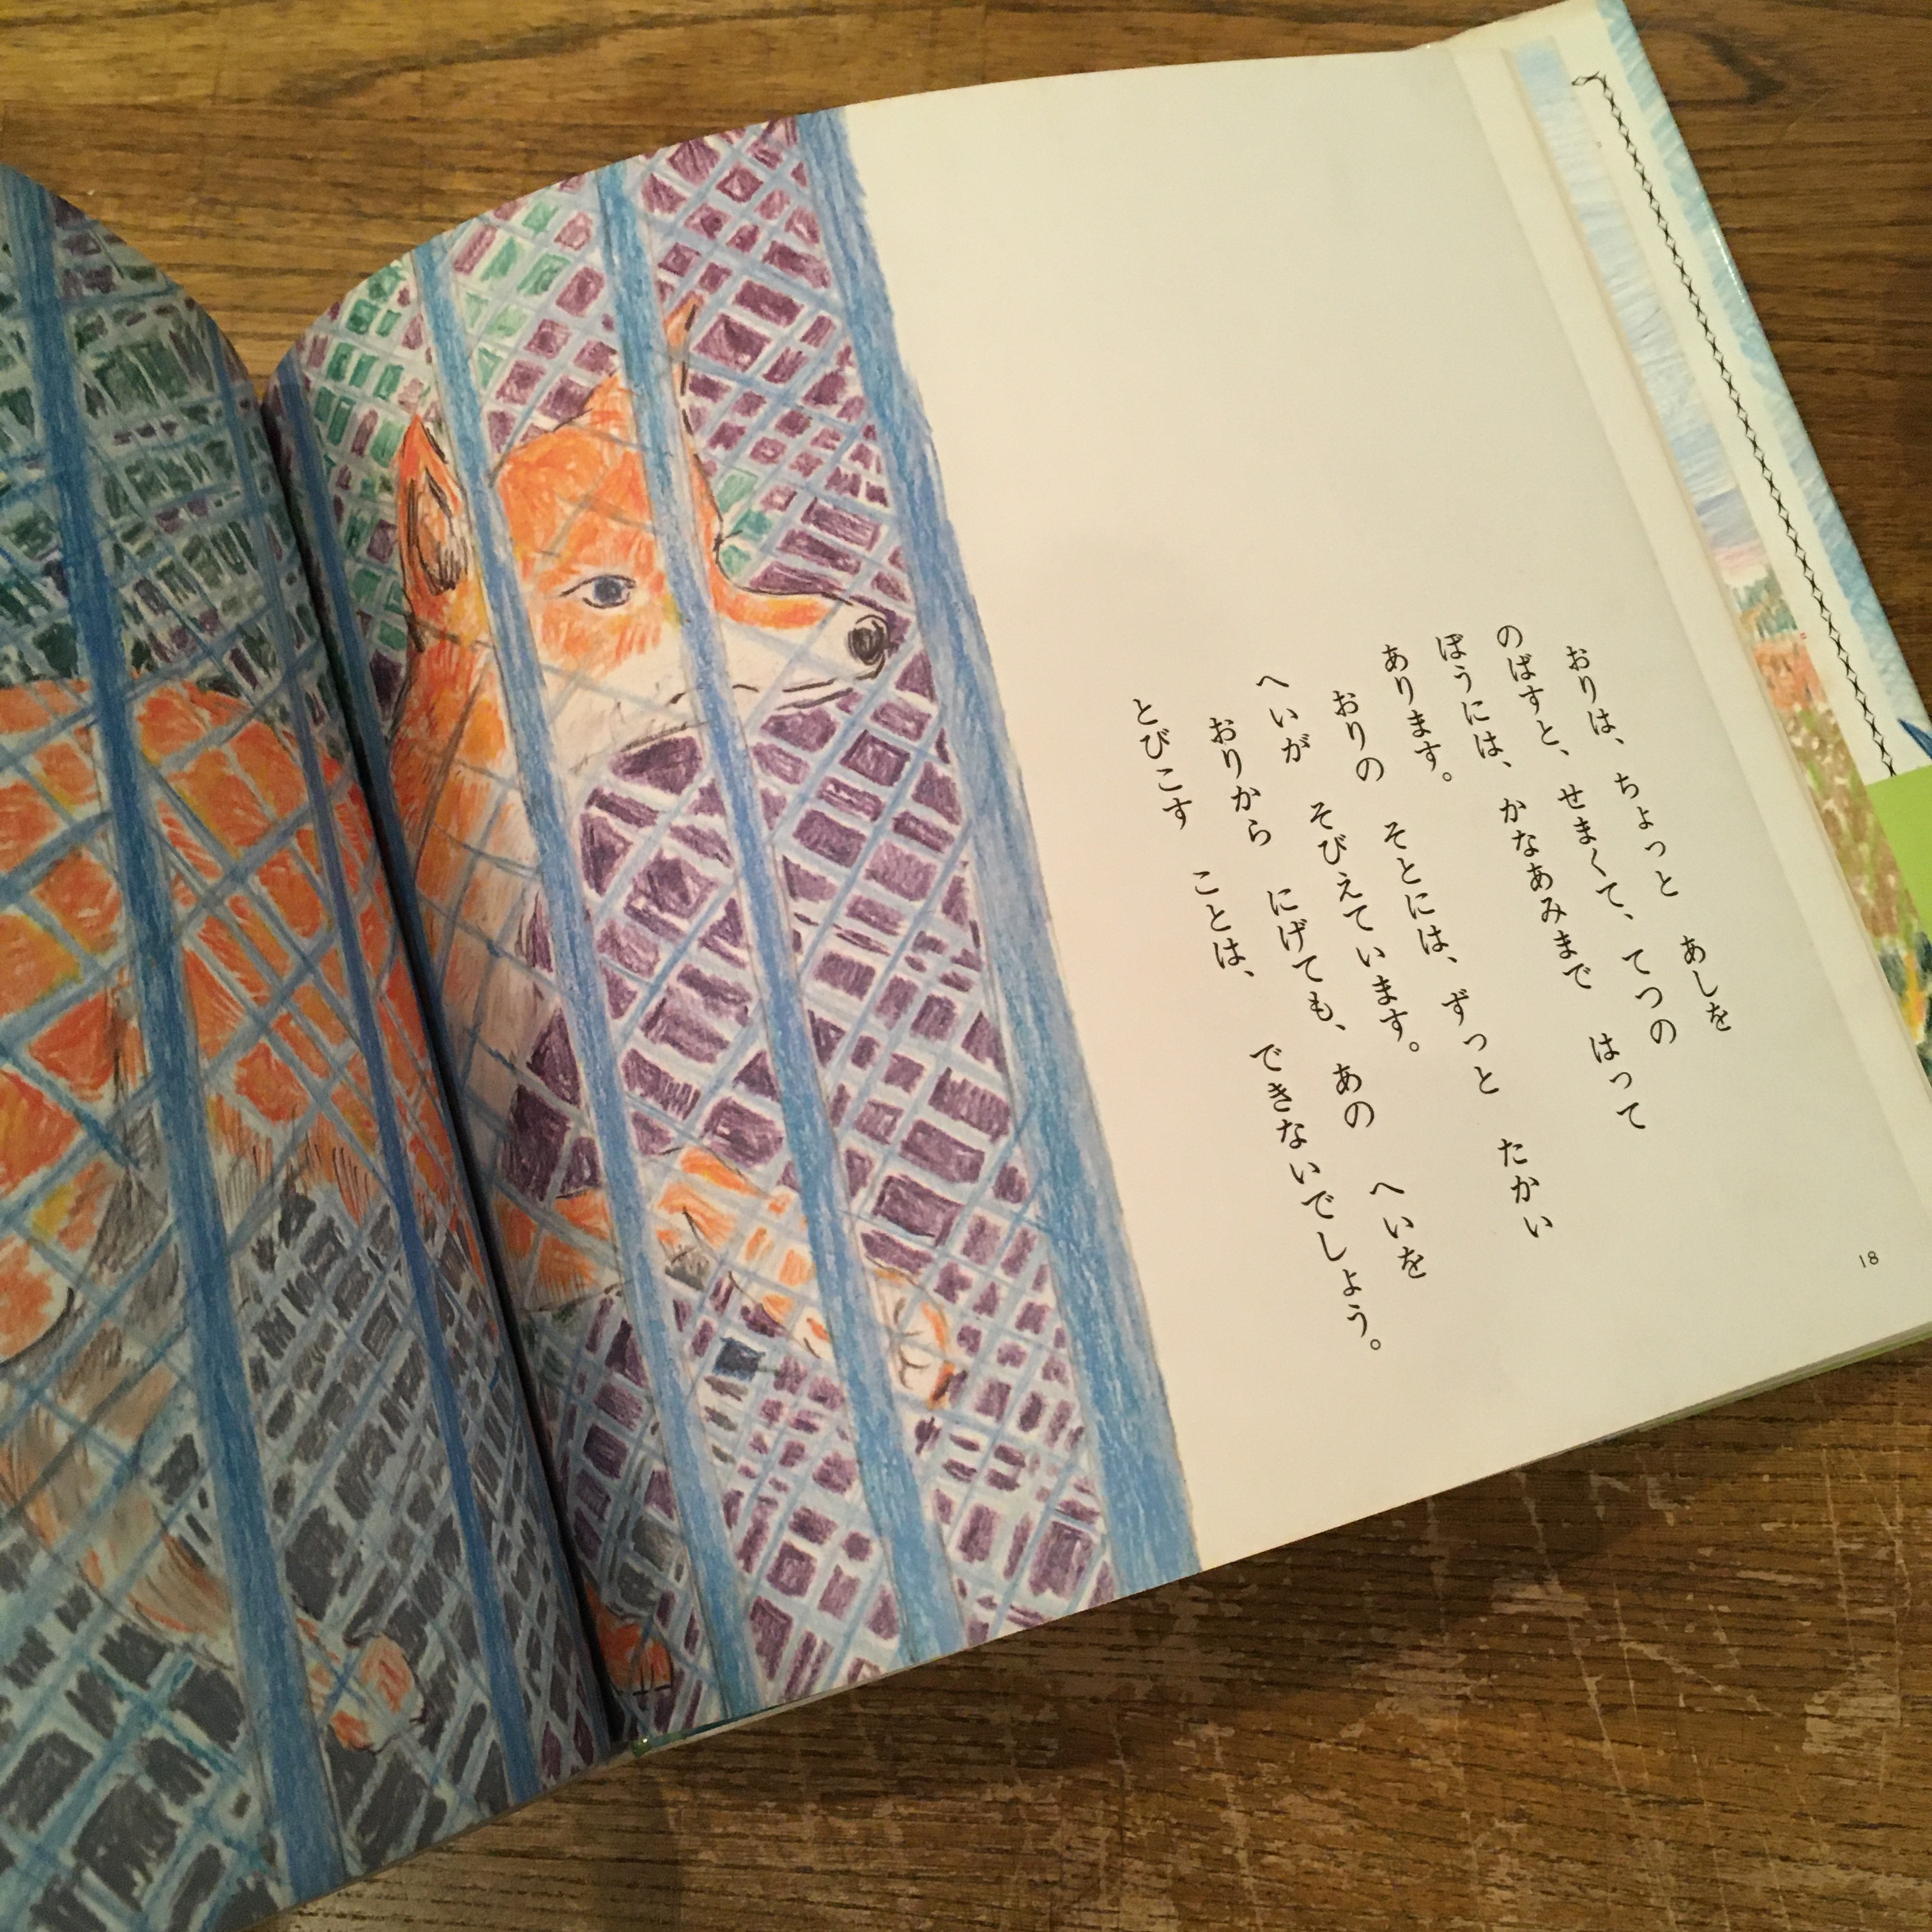 おりは、ちょっと　あしを
のばすと、せまくて、てつの
ぼうには、かなあみまで　はって
あります。
おりの　そとには、ずっと　たかい
へいが　そびえています。
おりから　にげても、あの　へいを
とびこす　ことは、できないでしょう。
18